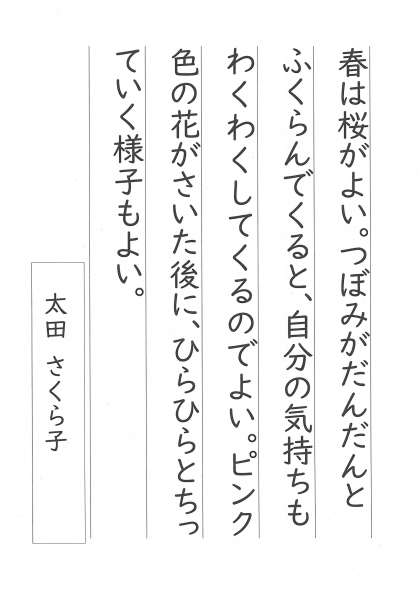 春は桜がよい。つぼみがだんだんと
ふくらんでくると、自分の気持ちも
わくわくしてくるのでよい。ピンク
色の花がさいた後に、ひらひらとちっ
ていく様子もよい。
太田 さくら子